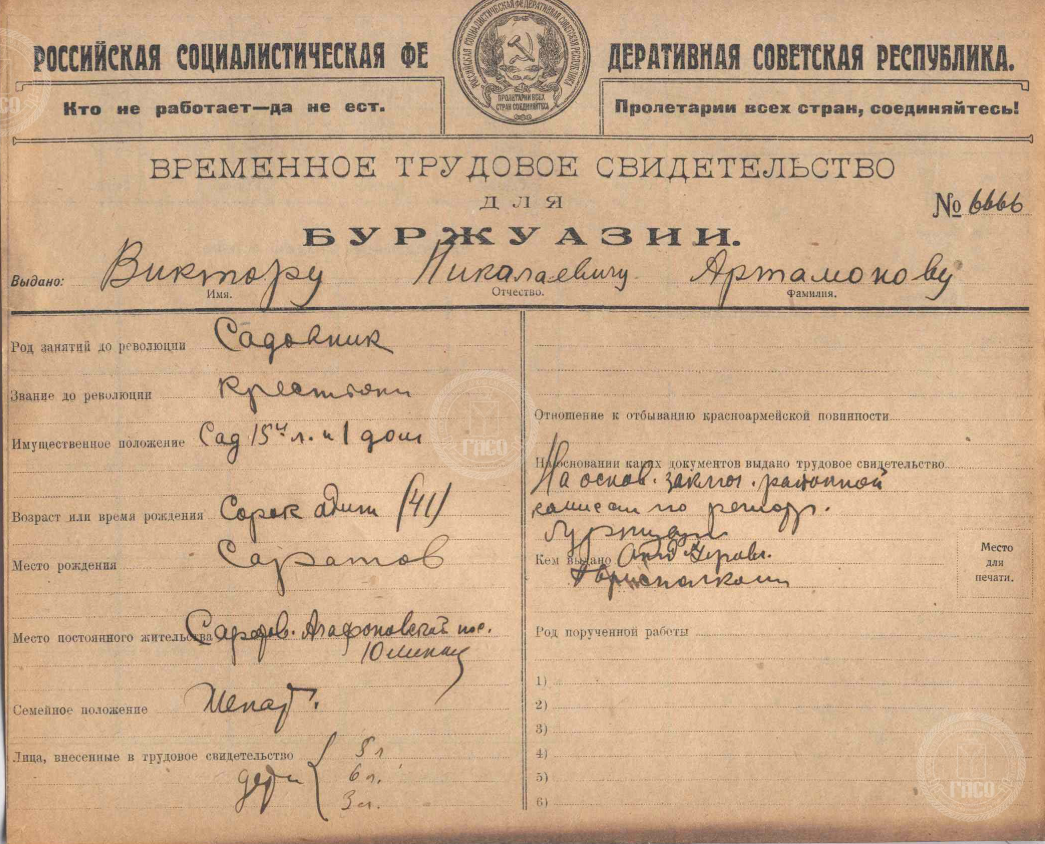 РОССИЙСКАЯ СОЦИАЛИСТИЧЕСКАЯ ФЕ ДЕРАТИВНАЯ СОВЕТСКАЯ РЕСПУБЛИКА.
РОССИЙСКАЯ СОЦИАЛИСТИЧЕСКАЯ ФЕДЕРАТИВНАЯ СОВЕТСКАЯ РЕСПУБЛИКА
ПРОЛЕТАРИИ ВСЕХ
СТРАН СОЕДИНЯЙТЕСЬ
Кто не работает—да не ест.
Пролетарии всех стран, соединяйтесь!
ВРЕМЕННОЕ ТРУДОВОЕ СВИДЕТЕЛЬСТВО
ДЛЯ
№ 6666
БУРЖУАЗИИ.
Выдано: Виктору Николаевичу Артамонову
Имя. Отчество. Фамилия.
Род занятий до революции Садовник
Звание до революции
Имущественное положение Сад 15 л. и 1 дом
Возраст или время рождения Сорок один (41)
Место рождения Саратов
Место постоянного жительства Саратов. Агафоновский пос.
Семейное положение Женат.
Лица, внесенные в трудовое свидетельство 5 л
дети 6 л.
3 л.
Отношение к отбыванию красноармейской повинности
На основании каких документов выдано трудовое свидетельство
На основ. заключ. районной
комиссии по регистр.
буржуазии
Кем выдано Отд. Управл.
Горисполкома
Место
для
печати.
Род порученной работы
1)
2)
3)
4)
5)
6)
ГАСО
ГАСО
ГАСО